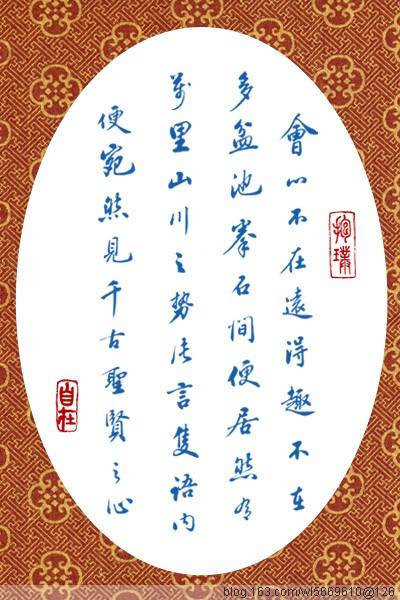 會心不在遠得趣不在
多盆池拳石間便居然有
萬里山川之勢片言隻語內
便宛然見千古聖賢之心
抱璞
自在
blog.163.com/wl5669610@126